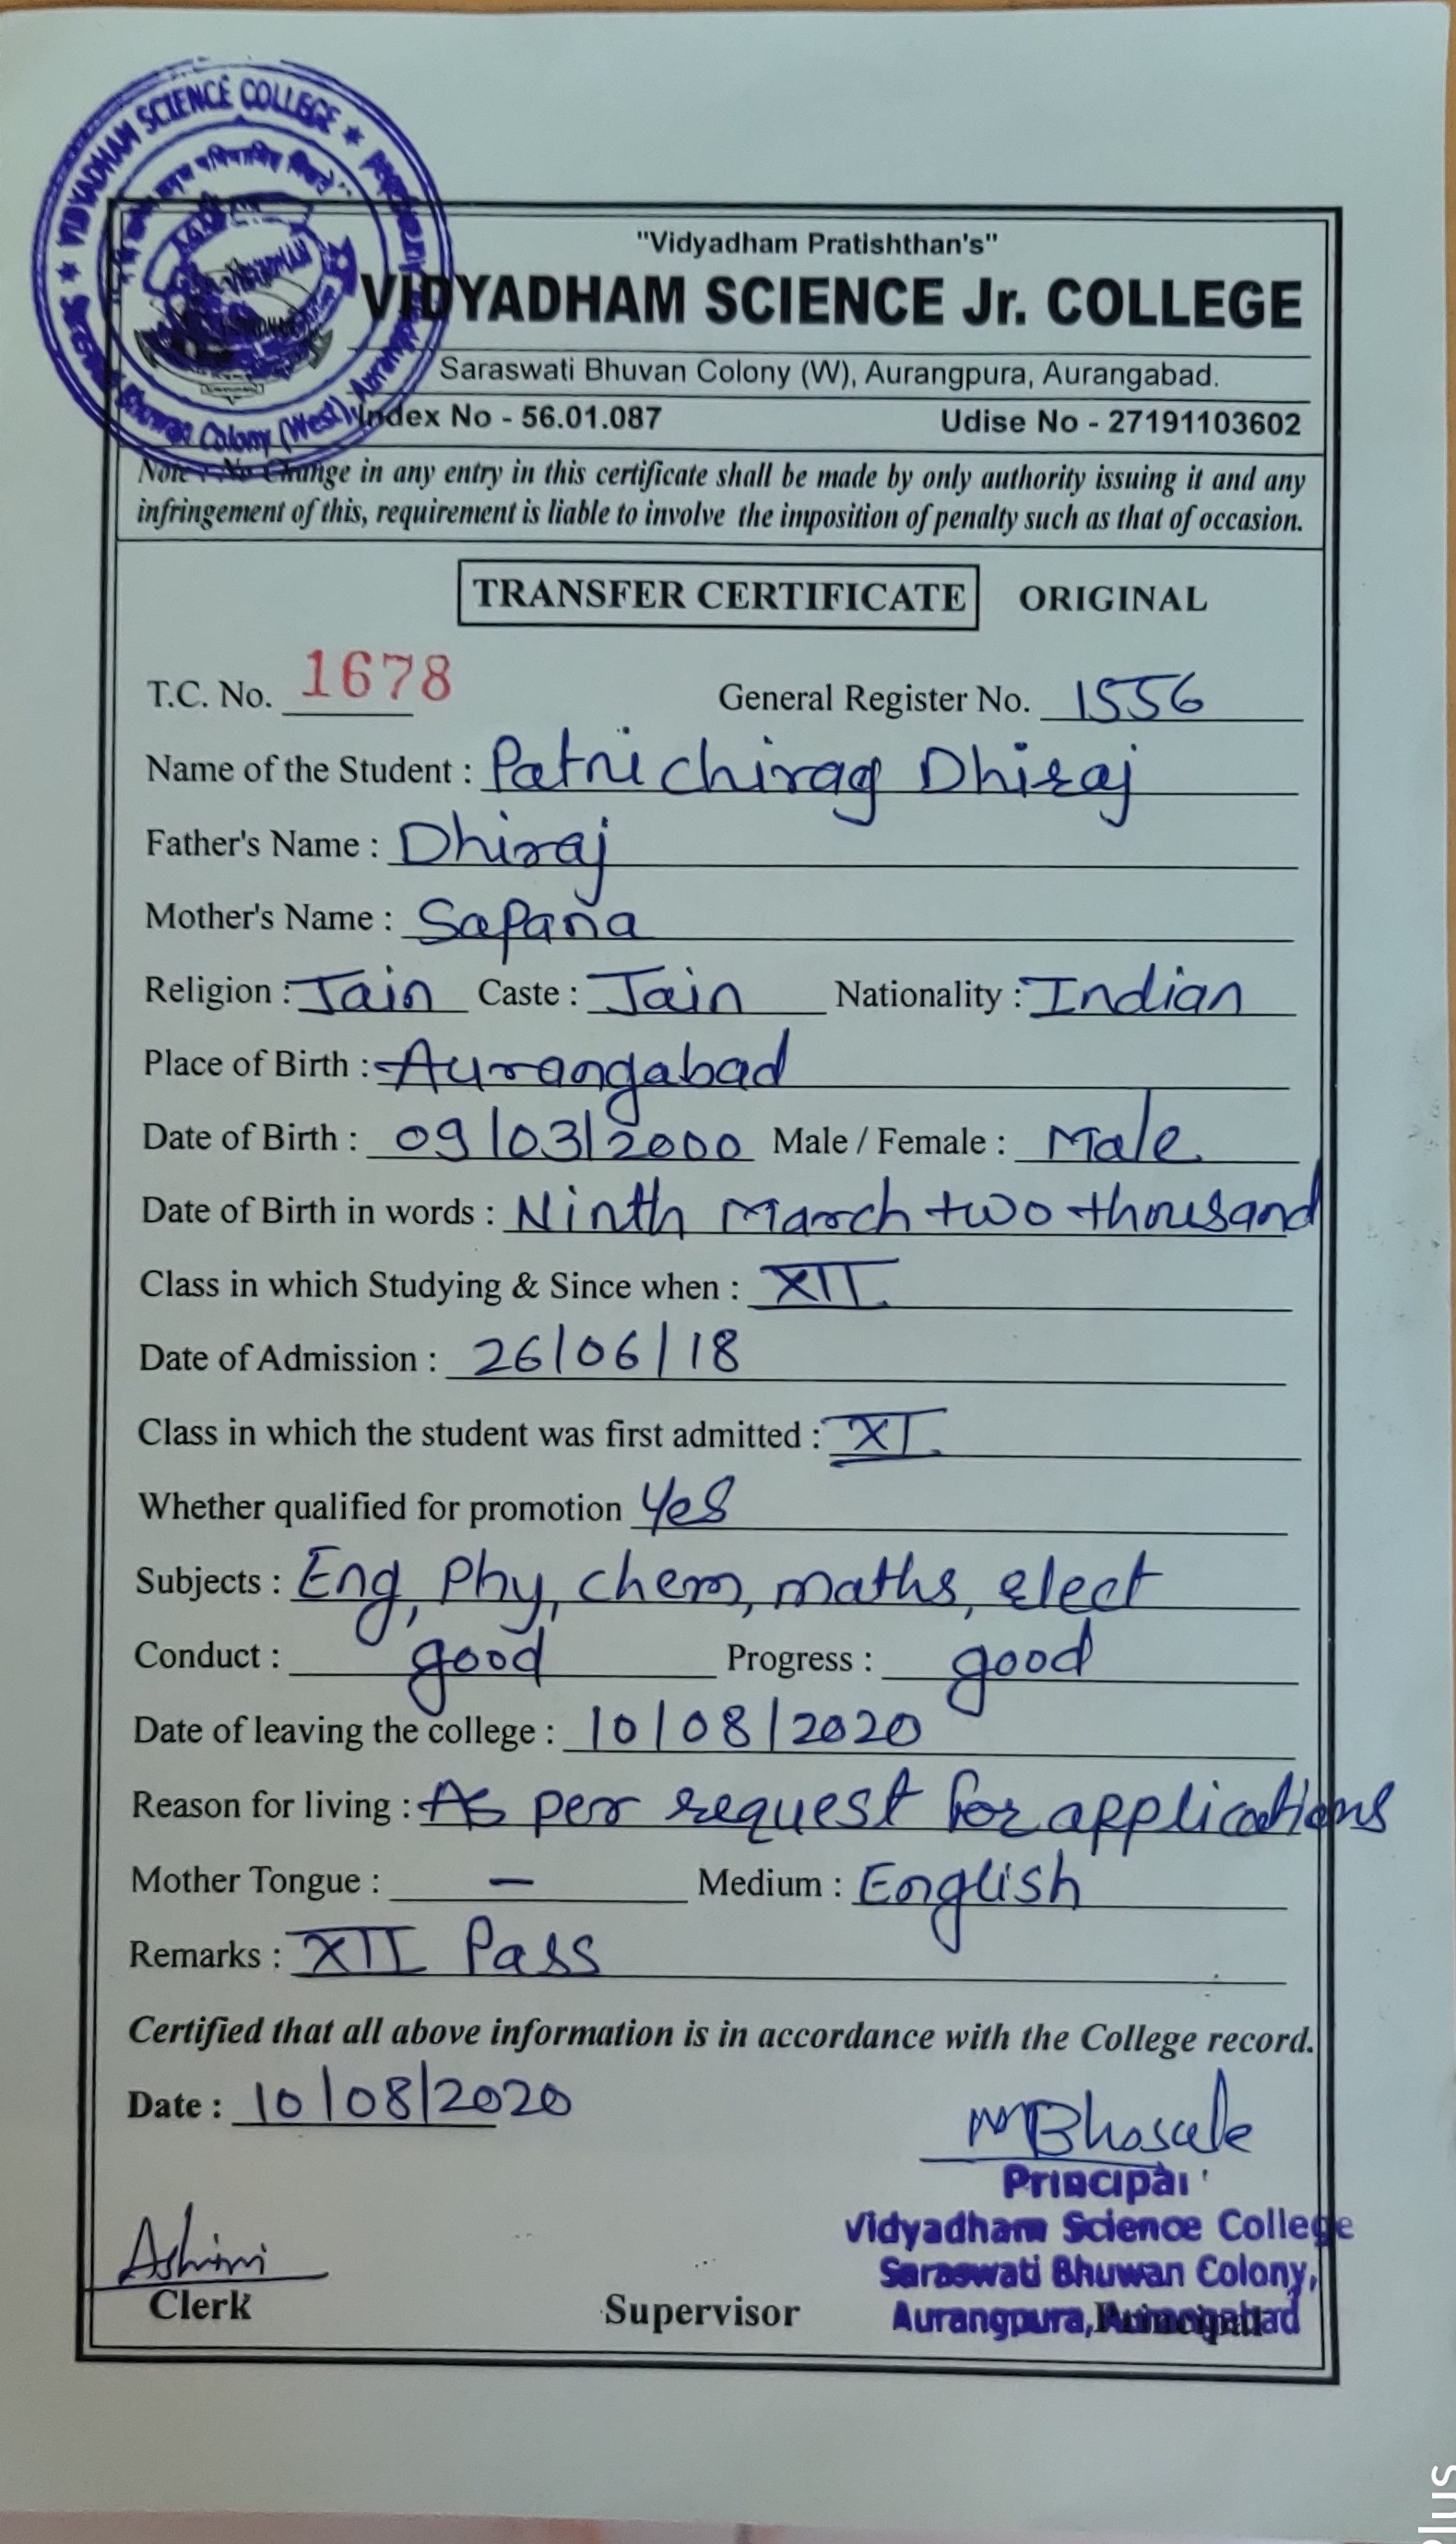 ★ VIDYADHAM SCIENCE COLLEGE ★
Colony (West),
"Vidyadham Pratishthan's"
VIDYADHAM SCIENCE Jr. COLLEGE
Saraswati Bhuvan Colony (W), Aurangpura, Aurangabad.
Index No - 56.01.087 Udise No - 27191103602
Note : No Change in any entry in this certificate shall be made by only authority issuing it and any
infringement of this, requirement is liable to involve the imposition of penalty such as that of occasion.
TRANSFER CERTIFICATE ORIGINAL
T.C. No. 1678 General Register No. 1556
Name of the Student : Patni chirag Dhiraj
Father's Name : Dhiraj
Mother's Name : Sapana
Religion : Jain Caste : Jain Nationality : Indian
Place of Birth : Aurangabad
Date of Birth : 09/03/2000 Male / Female : Male
Date of Birth in words : Ninth March two thousand
Class in which Studying & Since when : XII
Date of Admission : 26/06/18
Class in which the student was first admitted : XI
Whether qualified for promotion Yes
Subjects : Eng, Phy, chem, maths, elect
Conduct : good Progress : good
Date of leaving the college : 10/08/2020
Reason for living : As per request for applications
Mother Tongue : — Medium : English
Remarks : XII Pass
Certified that all above information is in accordance with the College record.
Date : 10/08/2020
MBhosale
Principal
Vidyadham Science College
Saraswati Bhuwan Colony,
Aurangpura, Aurangabad
Clerk Supervisor Principal